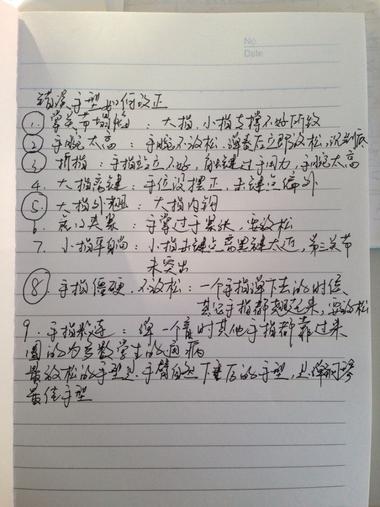 No.
Date
错误手型如何改正
① 掌关节塌陷：大指、小指支撑不好所致
② 手腕太高：手腕不放松，弹奏后立即放松，沉到底
③ 折指：手指站立不好，触键过于用力，手腕太高
4. 大指离键：手位没摆正，击键点偏外
⑤ 大指外翘：大指内钩
6. 虎口夹紧：手掌过于紧张，要放松
7. 小指平自倒：小指击键点离黑键太近，第三关节
未突出
⑧ 手指僵硬，不放松：一个手指弹下去的时候
其它手指都翘起来，要放松
9. 手指粘连：弹一个音时其他手指都靠过来
圈的为多数学生的病
最放松的手型是手臂自然下垂后的手型，是弹钢琴
最佳手型